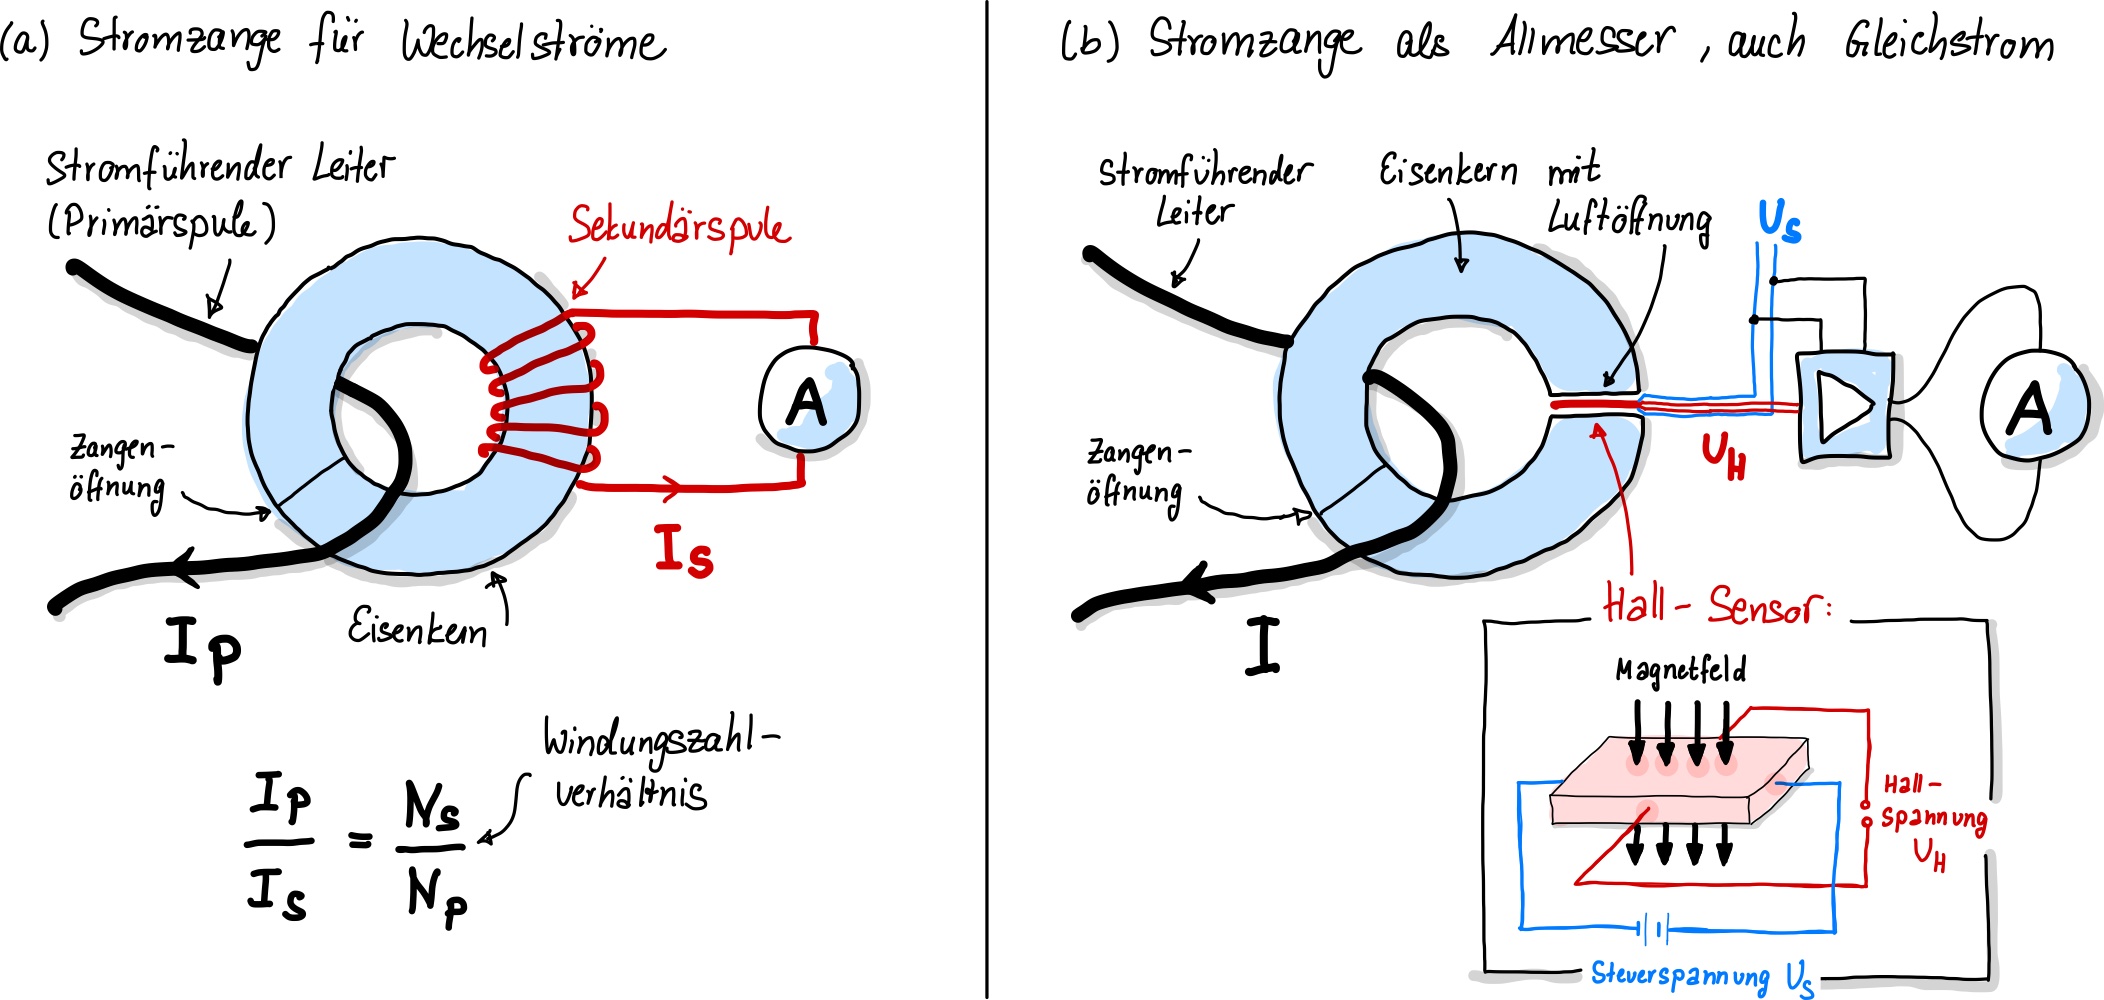 (a) Stromzange für Wechselströme
Stromführender Leiter
(Primärspule)
Sekundärspule
A
Zangen-
öffnung
I_S
Eisenkern
I_p
Windungszahl-
verhältnis
I_p / I_S = N_S / N_p
(b) Stromzange als Allmesser, auch Gleichstrom
Stromführender
Leiter
Eisenkern mit
Luftöffnung
U_S
A
U_H
Zangen-
öffnung
I
Hall-Sensor:
Magnetfeld
Hall-
spannung
U_H
Steuerspannung U_S